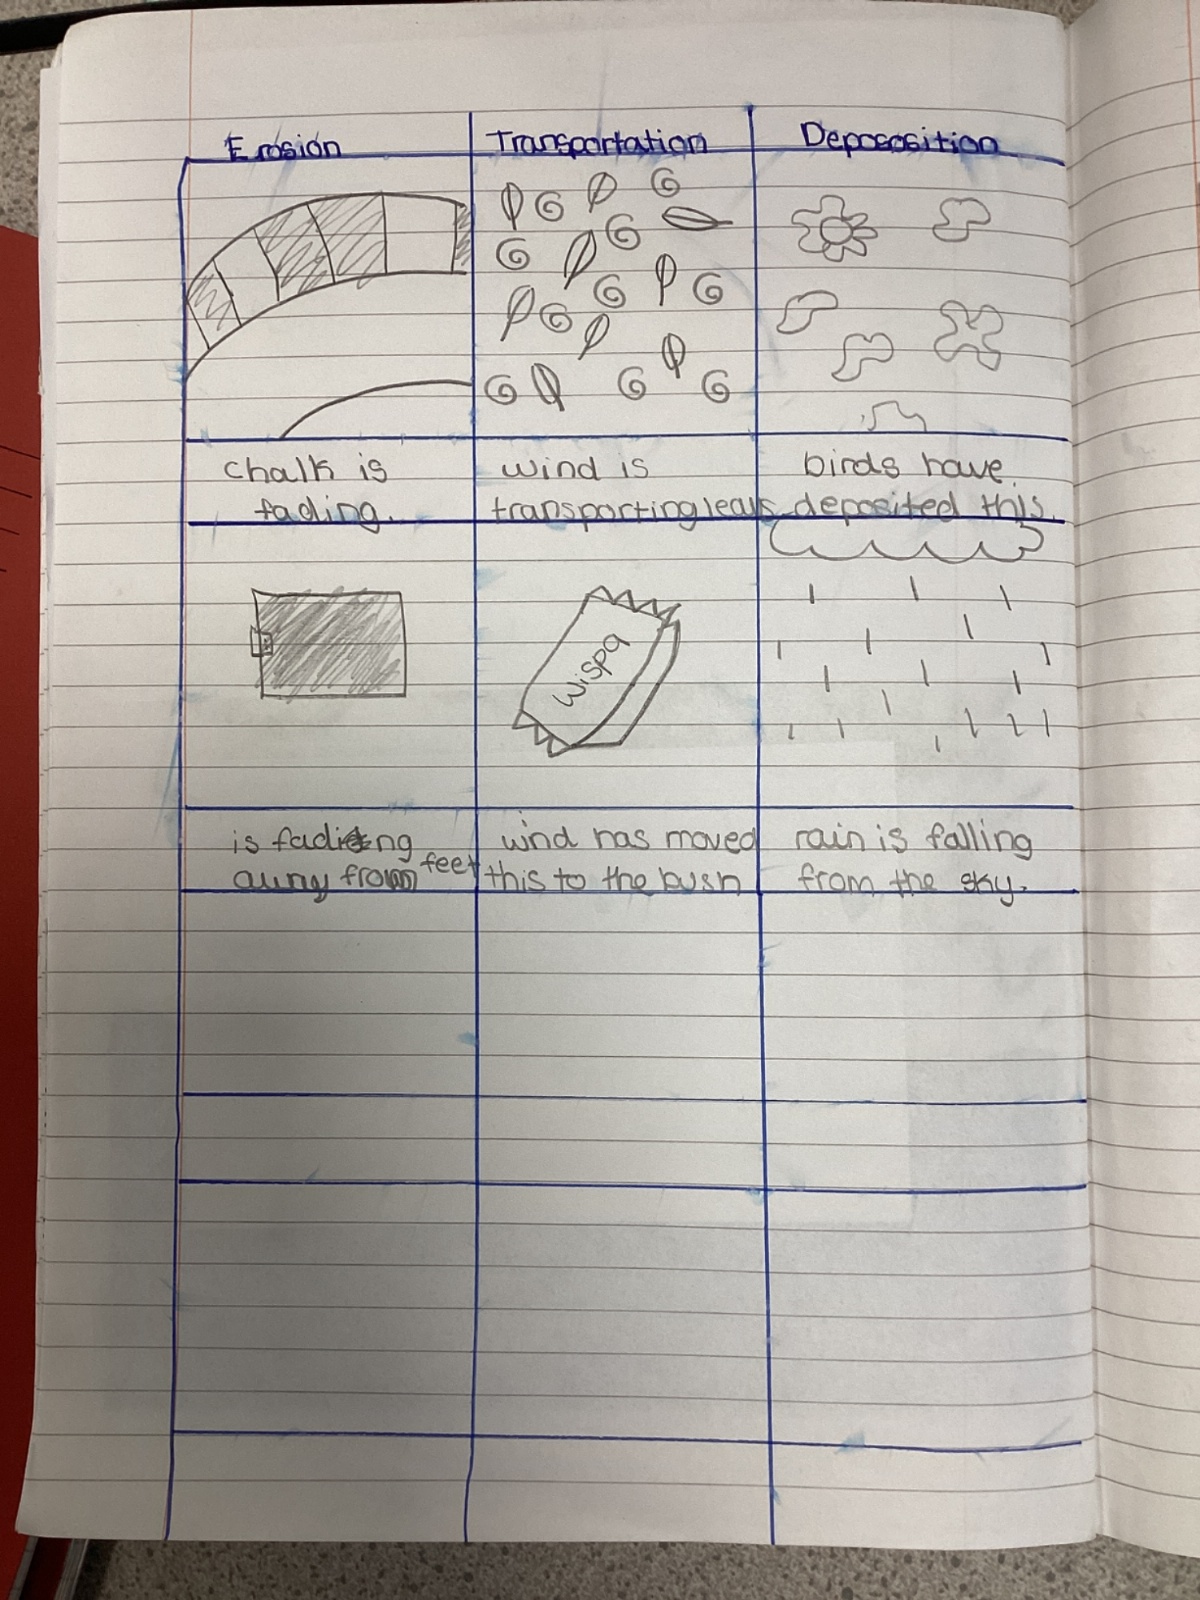 Erosion Transportation Depososition
chalk is wind is birds have
fading. transporting leavs deposited this.
Wispa
is fading wind has moved rain is falling
from feet this to the bush from the sky.